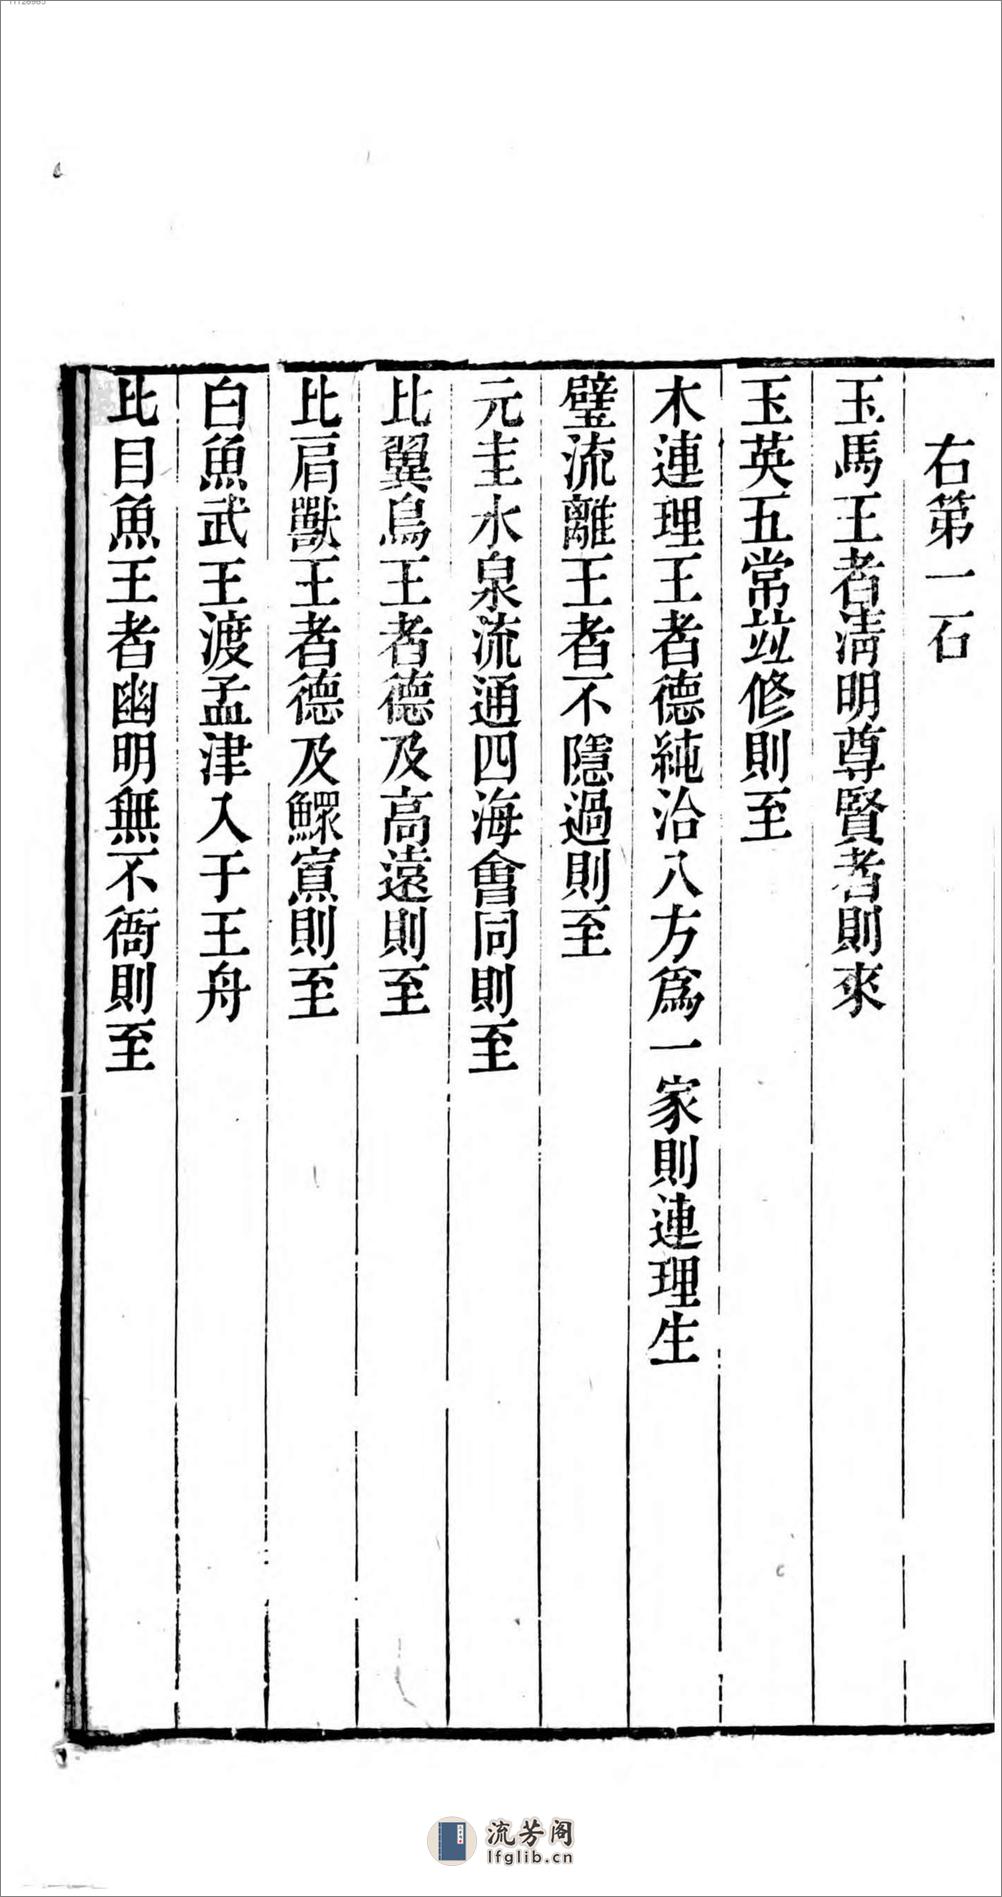 右第一石
玉馬王者清明尊賢者則來
玉英五常竝修則至
木連理王者德純洽八方爲一家則連理生
璧流離王者不隱過則至
元圭水泉流通四海會同則至
比翼鳥王者德及高遠則至
比肩獸王者德及鰥寡則至
白魚武王渡孟津入于王舟
比目魚王者幽明無不衙則至
流芳阁
lfglib.cn